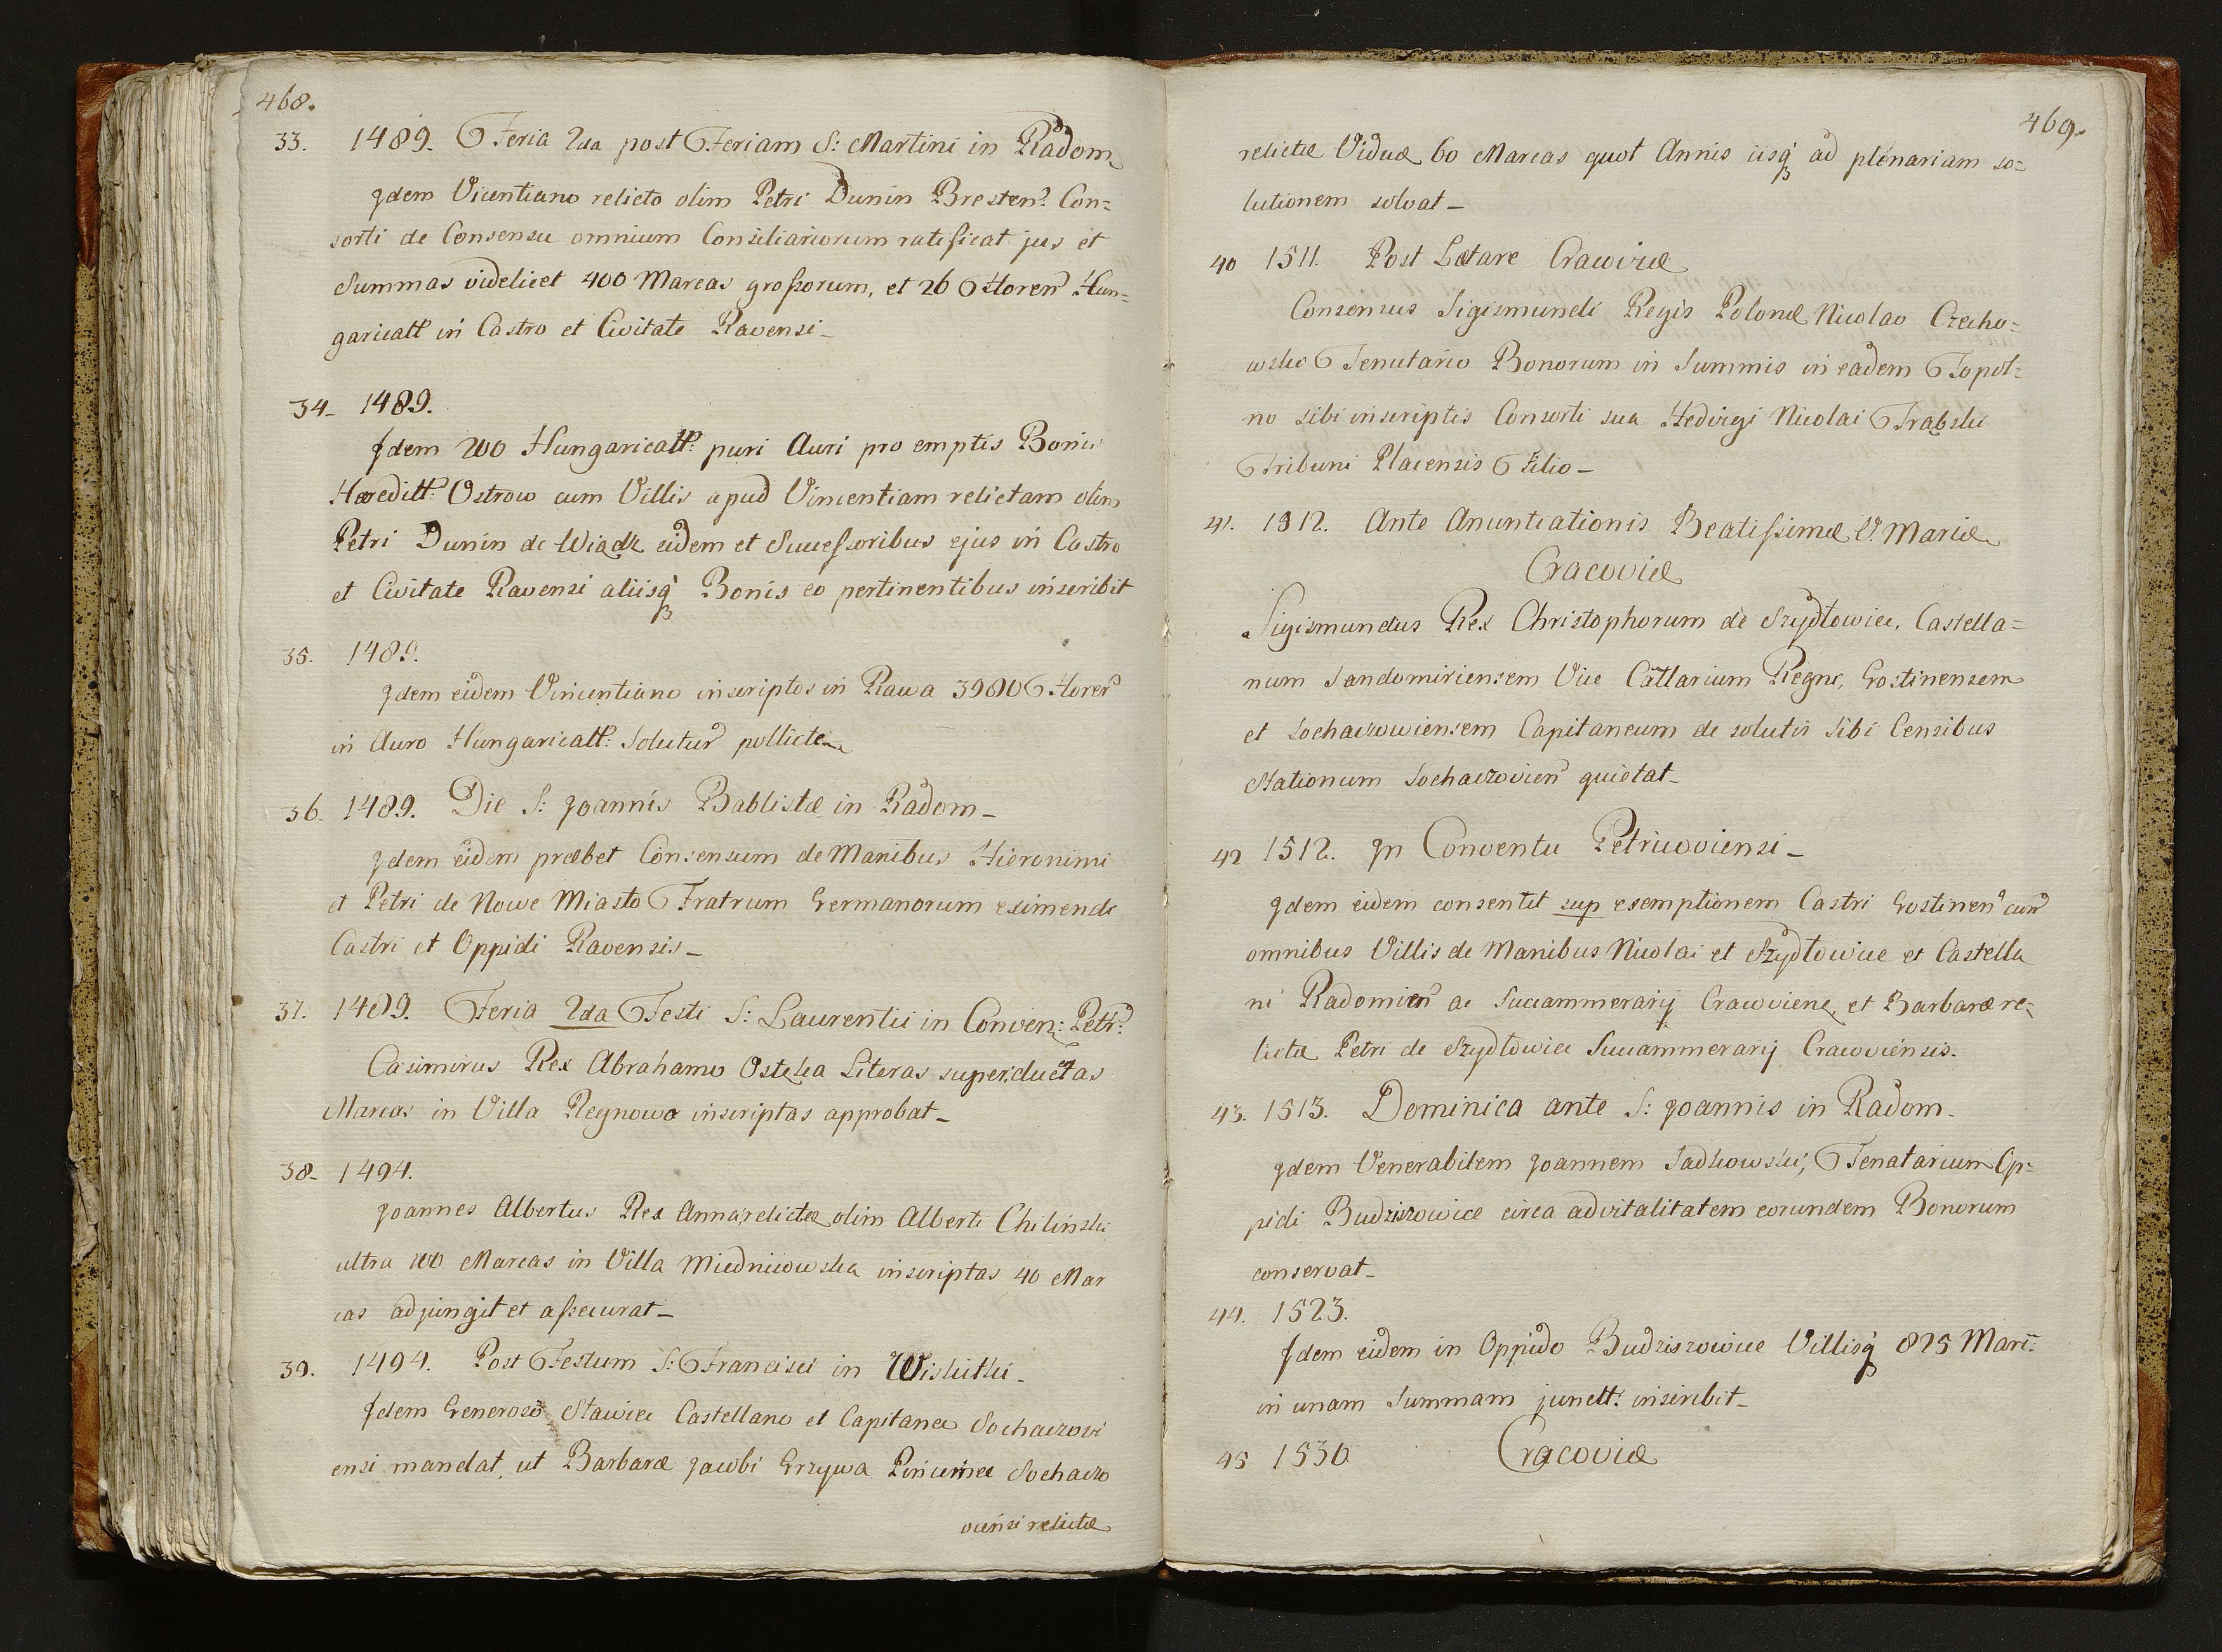 468.
33. 1489. Feria 2da post Feriam S: Martini in Radom
Idem Vicentiano relicto olim Petri Dunin Bresten: Con=
sorti de Consensu omnium Consiliariorum ratificat jus et
Summas videlicet 400 Marcas grossorum, et 26 Floren Hun=
garicall in Castro et Civitate Ravensi_
34_ 1489.
Idem 200 Hungaricall: puri Auri pro emptis Bonis
Hæreditt: Ostrow cum Villis apud Vincentiam relictam olim
Petri Dunin de Wiadz eidem et Successoribus ejus in Castro
et Civitate Ravensi aliisq Bonis eo pertinentibus inscribit
35. 1489.
Idem eidem Vincentiano inscriptos in Rawa 3980 Floren
in Auro Hungaricall: Solutur pollicte
36_ 1489. Die S: Joannis Bablistæ in Radom_
Idem eidem præbet Consensum de Manibus Hieronimi
et Petri de Nowe Miasto Fratrum Germanorum eximendi
Castri et Oppidi Ravensis_
37. 1489. Feria 2da Festi S: Laurentii in Conven: Petr:
Casimirus Rex Abrahamo Osteska Literas super ductas
Marcas in Villa Regnowo inscriptas approbat_
38_ 1494.
Joannes Albertus Rex Annæ relictæ olim Alberti Chilinski
ultra 100 Marcas in Villa Miedniewska inscriptas 40 Mar
cas adjungit et assecurat_
39. 1494. Post Festum S: Francisci in Wiskitki_
Idem Generoso Stawice Castellano et Capitaneo Sochaczovi
ensi mandat, ut Barbaræ Jacobi Grzywa Pincernæ Sochaczo
viensi relictæ
469.
relictæ Viduæ 60 Marcas quot Annis iisq ad plenariam so=
lutionem solvat_
40 1511. Post Lætare Cracoviæ
Consensus Sigismundi Regis Polonæ Nicolao Czecho=
wski Tenutario Bonorum in Summis in eadem Topol=
no sibi inscriptis Consorti sua Hedvigi Nicolai Trabski
Tribuni Placensis Filio_
41. 1512. Ante Anuntiationis Beatissimæ V. Mariæ
Cracoviæ
Sigismundus Rex Christophorum de Szydłowiec, Castella=
num Sandomiriensem Vice Cattlarium Regni, Gostinensem
et Sochaczowiensem Capitaneum de solutis sibi Censibus
Stationum Sochaczovien quietat_
42 1512. In Conventu Petricoviensi_
Idem eidem consentit sup exemptionem Castri Gostinen cum
omnibus Villis de Manibus Nicolai et Szydłowice et Castella
ni Radomien ac Succammerarij Cracoviene, et Barbaræ re=
lictæ Petri de Szydłowice Succammerarij Cracoviensis.
43. 1513. Dominica ante S: Joannis in Radom_
Idem Venerabilem Joannem Sadkowski, Tenatarium Op=
pidi Budziszowice circa advitalitatem eorundem Bonorum
conservat_
44. 1523.
Idem eidem in Oppido Budziszowice Villisq 825 Marc:
in unam Summam junctt: inscribit_
45 1530 Cracoviæ